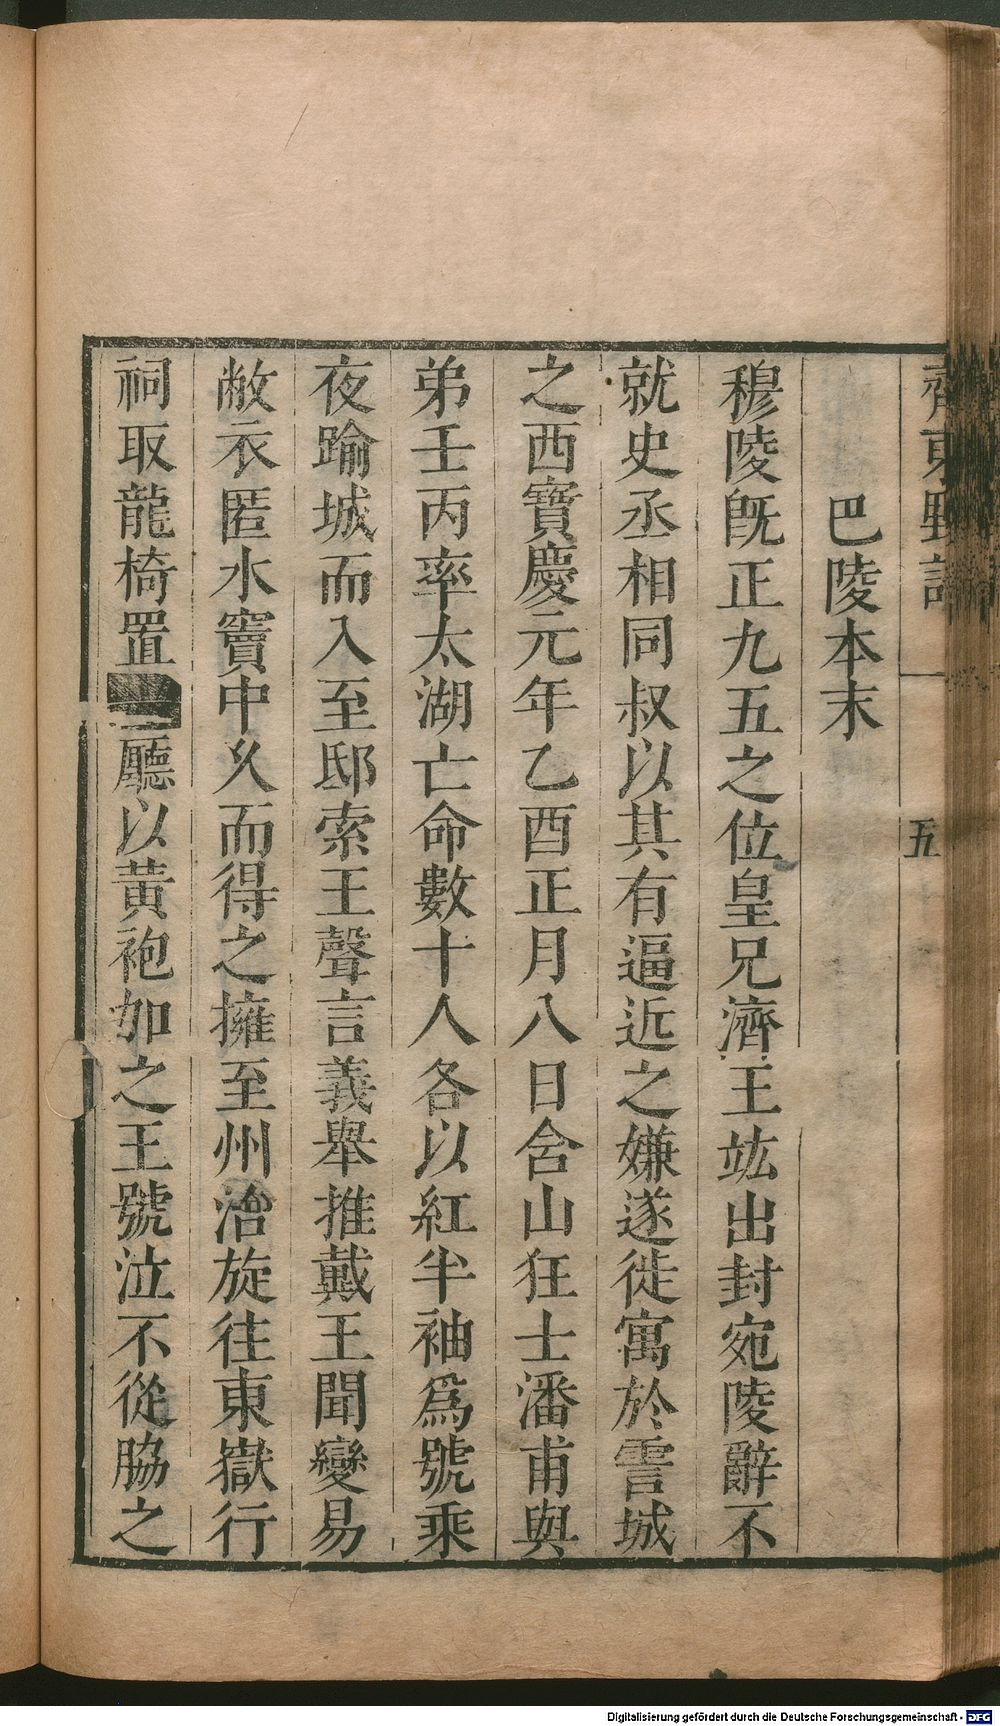 巴陵本末
穆陵旣正九五之位皇兄濟王竑出封宛陵辭不
就史丞相同叔以其有逼近之嫌遂徙寓於霅城
之西寶慶元年乙酉正月八日含山狂士潘甫與
弟壬丙率太湖亡命數十人各以紅半袖爲號乘
夜踰城而入至邸索王聲言義舉推戴王聞變易
敝衣匿水竇中乆而得之擁至州治旋往東嶽行
祠取龍椅置廳以黃袍加之王號泣不從脇之
齊東野
五
Digitalisierung gefördert durch die Deutsche Forschungsgemeinschaft - DFG